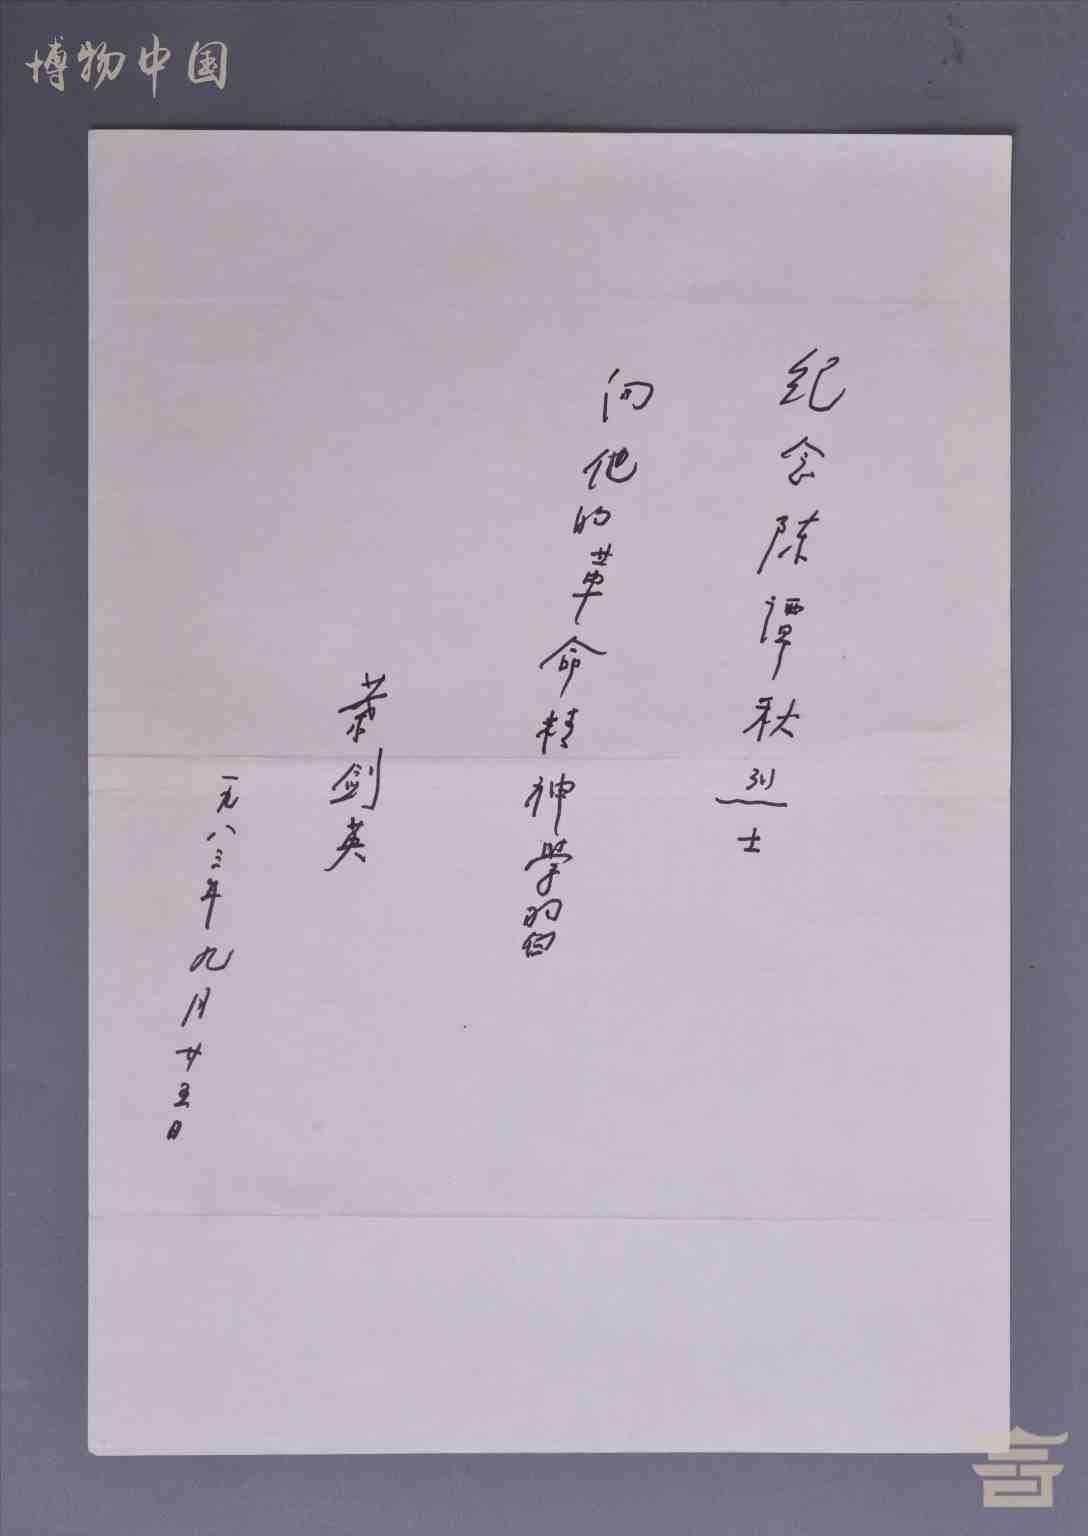 博物中国
纪念陈潭秋烈士
向他的革命精神学習
葉剑英
一九八三年九月廿五日